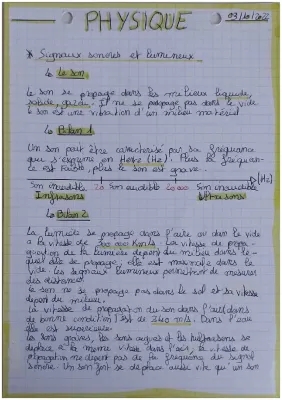 PHYSIQUE
03/10/202
* Signaux sonores et lumineux
↳ Le son:
Le son se propage dans les milieux liquide,
solide, gazeux. Il ne se propage pas dans le vide
le son est une vibration d'un milieu matériel
↳ Bilan 1
Un son peut être caractérisé par sa fréquence
qui s'exprime en Hertz (Hz). Plus la fréquen-
ce est faible, plus le son est grave.
(Hz)
Son inaudible 20 Son audible 20000 Son inaudible
Infrasons Ultrasons
↳ Bilan 2
La lumière se propage dans l'air ou dans le vide
à la vitesse de 300 000 Km/s. La vitesse de propa-
gation de la lumière dépend du milieu dans le-
quel elle se propage, elle est maximale dans le
vide. Les signaux lumineux permettent de mesurer
des distances.
Le son ne se propage pas dans le sol et sa vitesse
dépend du milieu.
La vitesse de propagation du son dans l'air dans
de bonne condition est de 340 m/s. Dans l'eau
elle est supérieure.
Les sons graves, les sons aigues et les ultrasons se
déplace à la même vitesse dans l'air, la vitesse de
propagation ne dépent pas de la fréquence du signal
sonore. Un son fort se déplace aussi vite qu'un son